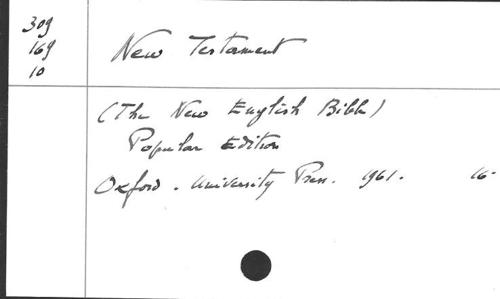 309
169
10
New Testament
(The New English Bible)
Popular Edition
Oxford. University Press. 1961. 16-